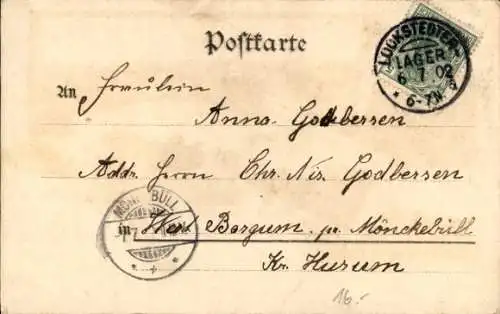 Postkarte
LOCKSTEDTER
LAGER
6 7 02
* 6-7N
An Fräulein
Anna Godbersen
Addr. Herrn Chr. Nis. Godbersen
BÜLL
in West Bargum. pr. Mönckebüll
Kr. Husum
16.-